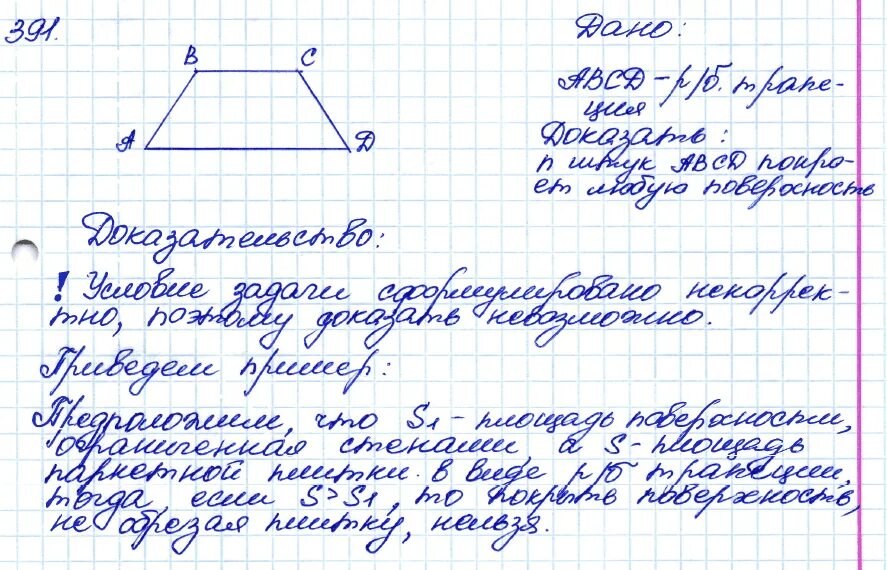 391.
B C
A D
Дано:
ABCD – р/б. трапе-
ция
Доказать:
n штук ABCD покро-
ет любую поверхность
Доказательство:
! Условие задачи сформулировано некоррек-
тно, поэтому доказать невозможно.
Приведем пример:
Предположим, что S1 – площадь поверхности,
ограниченная стенами, а S – площадь
паркетной плитки в виде р/б трапеции,
тогда, если S > S1, то покрыть поверхность,
не обрезая плитку, нельзя.